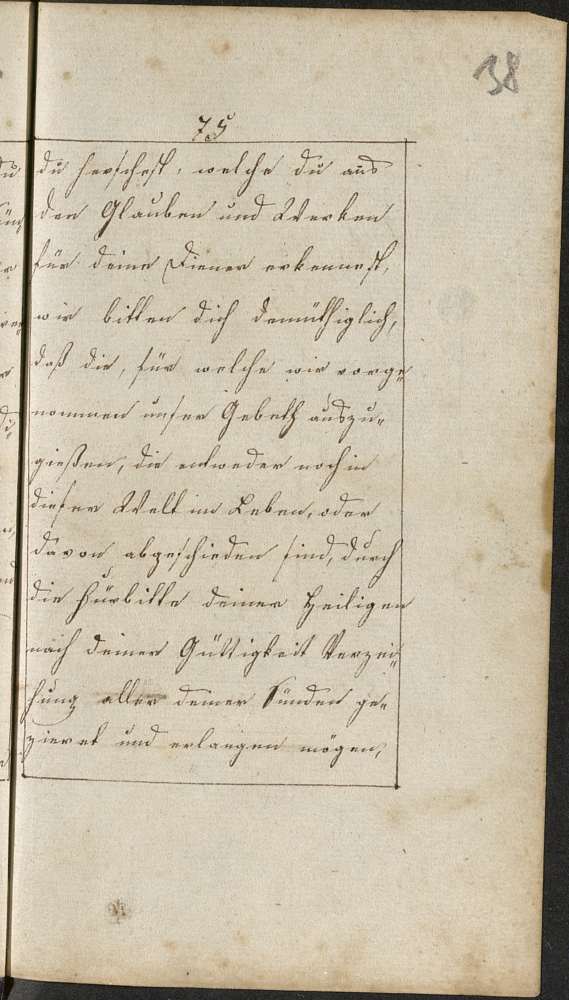 38
75
du herschest, welche du aus
den Glauben und Werken
für deine Diener erkennest,
wir bitten dich demüthiglich,
daß die, für welche wir vorge
nommen unser Gebeth auszu„
gießen, die entweder noch in
dieser Welt im Leben, oder
davon abgeschieden sind, durch
die Fürbitte deiner Heiligen
nach deiner Güttigkeit Verzei„
hung aller deiner Sünden ge„
zieret und erlangen mögen,